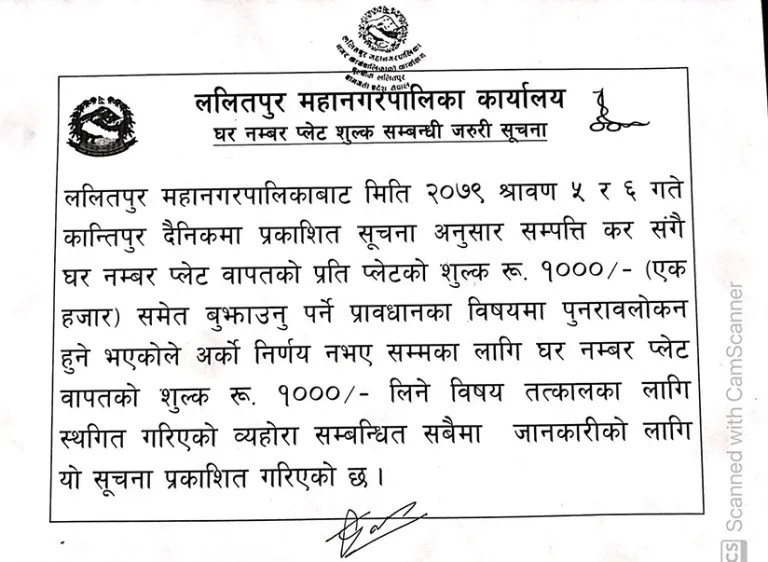 ललितपुर महानगरपालिका
नगर कार्यपालिकाको कार्यालय
पुल्चोक ललितपुर
बागमती प्रदेश नेपाल
ललितपुर महानगरपालिका कार्यालय
घर नम्बर प्लेट शुल्क सम्बन्धी जरुरी सूचना
ललितपुर महानगरपालिकाबाट मिति २०७९ श्रावण ५ र ६ गते
कान्तिपुर दैनिकमा प्रकाशित सूचना अनुसार सम्पत्ति कर संगै
घर नम्बर प्लेट वापतको प्रति प्लेटको शुल्क रू. १०००/- (एक
हजार) समेत बुझाउनु पर्ने प्रावधानका विषयमा पुनरावलोकन
हुने भएकोले अर्को निर्णय नभए सम्मका लागि घर नम्बर प्लेट
वापतको शुल्क रू. १०००/- लिने विषय तत्कालका लागि
स्थगित गरिएको व्यहोरा सम्बन्धित सबैमा जानकारीको लागि
यो सूचना प्रकाशित गरिएको छ ।
CS Scanned with CamScanner